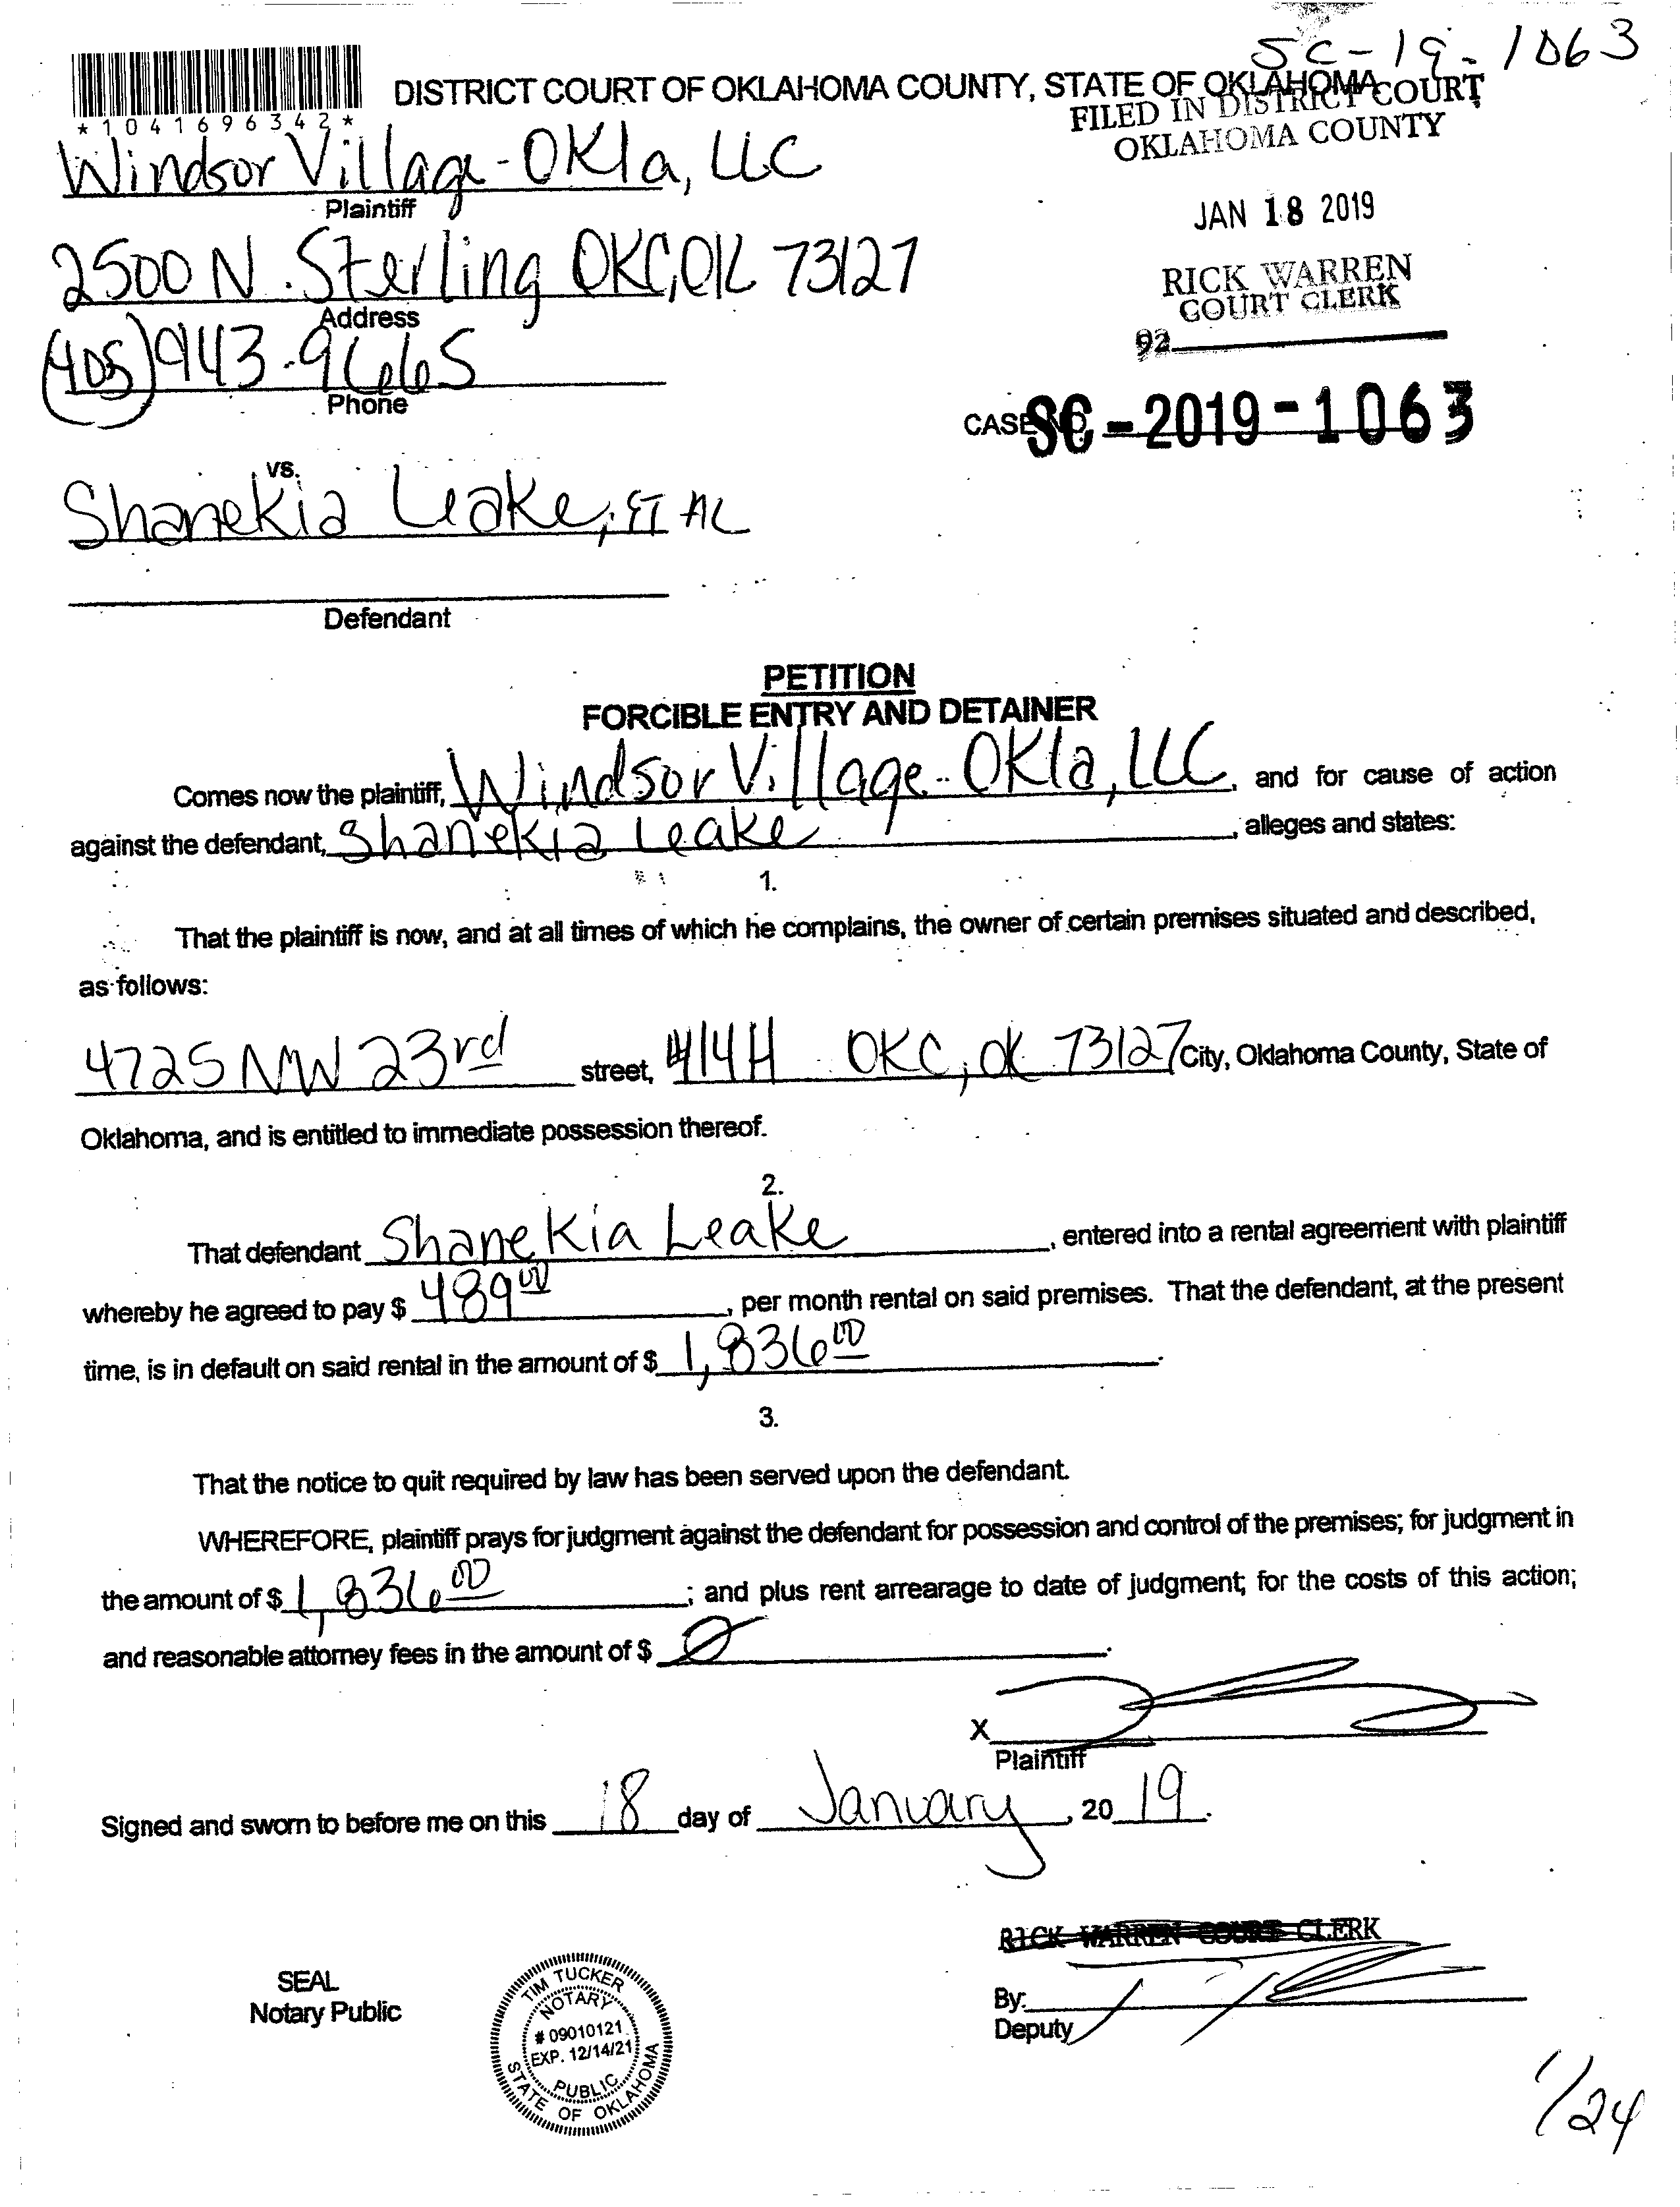 SC-19-1063
*1041696342*
DISTRICT COURT OF OKLAHOMA COUNTY, STATE OF OKLAHOMA
FILED IN DISTRICT COURT
OKLAHOMA COUNTY
Windsor Village-Okla, LLC
Plaintiff
JAN 18 2019
2500 N. Sterling OKC, OK 73127
Address
RICK WARREN
COURT CLERK
92
(405) 943-9665
Phone
CASE NO. SC-2019-1063
vs.
Shanekia Leake, ET AL
Defendant
PETITION
FORCIBLE ENTRY AND DETAINER
Comes now the plaintiff, Windsor Village-Okla, LLC, and for cause of action
against the defendant, Shanekia Leake, alleges and states:
1.
That the plaintiff is now, and at all times of which he complains, the owner of certain premises situated and described,
as follows:
4725 NW 23rd street, #14H OKC, OK 73127 City, Oklahoma County, State of
Oklahoma, and is entitled to immediate possession thereof.
2.
That defendant Shanekia Leake, entered into a rental agreement with plaintiff
whereby he agreed to pay $ 489 00, per month rental on said premises. That the defendant, at the present
time, is in default on said rental in the amount of $ 1,836 00.
3.
That the notice to quit required by law has been served upon the defendant.
WHEREFORE, plaintiff prays for judgment against the defendant for possession and control of the premises; for judgment in
the amount of $ 1,836 00; and plus rent arrearage to date of judgment; for the costs of this action;
and reasonable attorney fees in the amount of $ Ø.
X
Plaintiff
Signed and sworn to before me on this 18 day of January, 2019.
RICK WARREN COURT CLERK
SEAL
Notary Public
TIM TUCKER
NOTARY
# 09010121
EXP. 12/14/21
PUBLIC
STATE OF OKLAHOMA
By:
Deputy
1/24